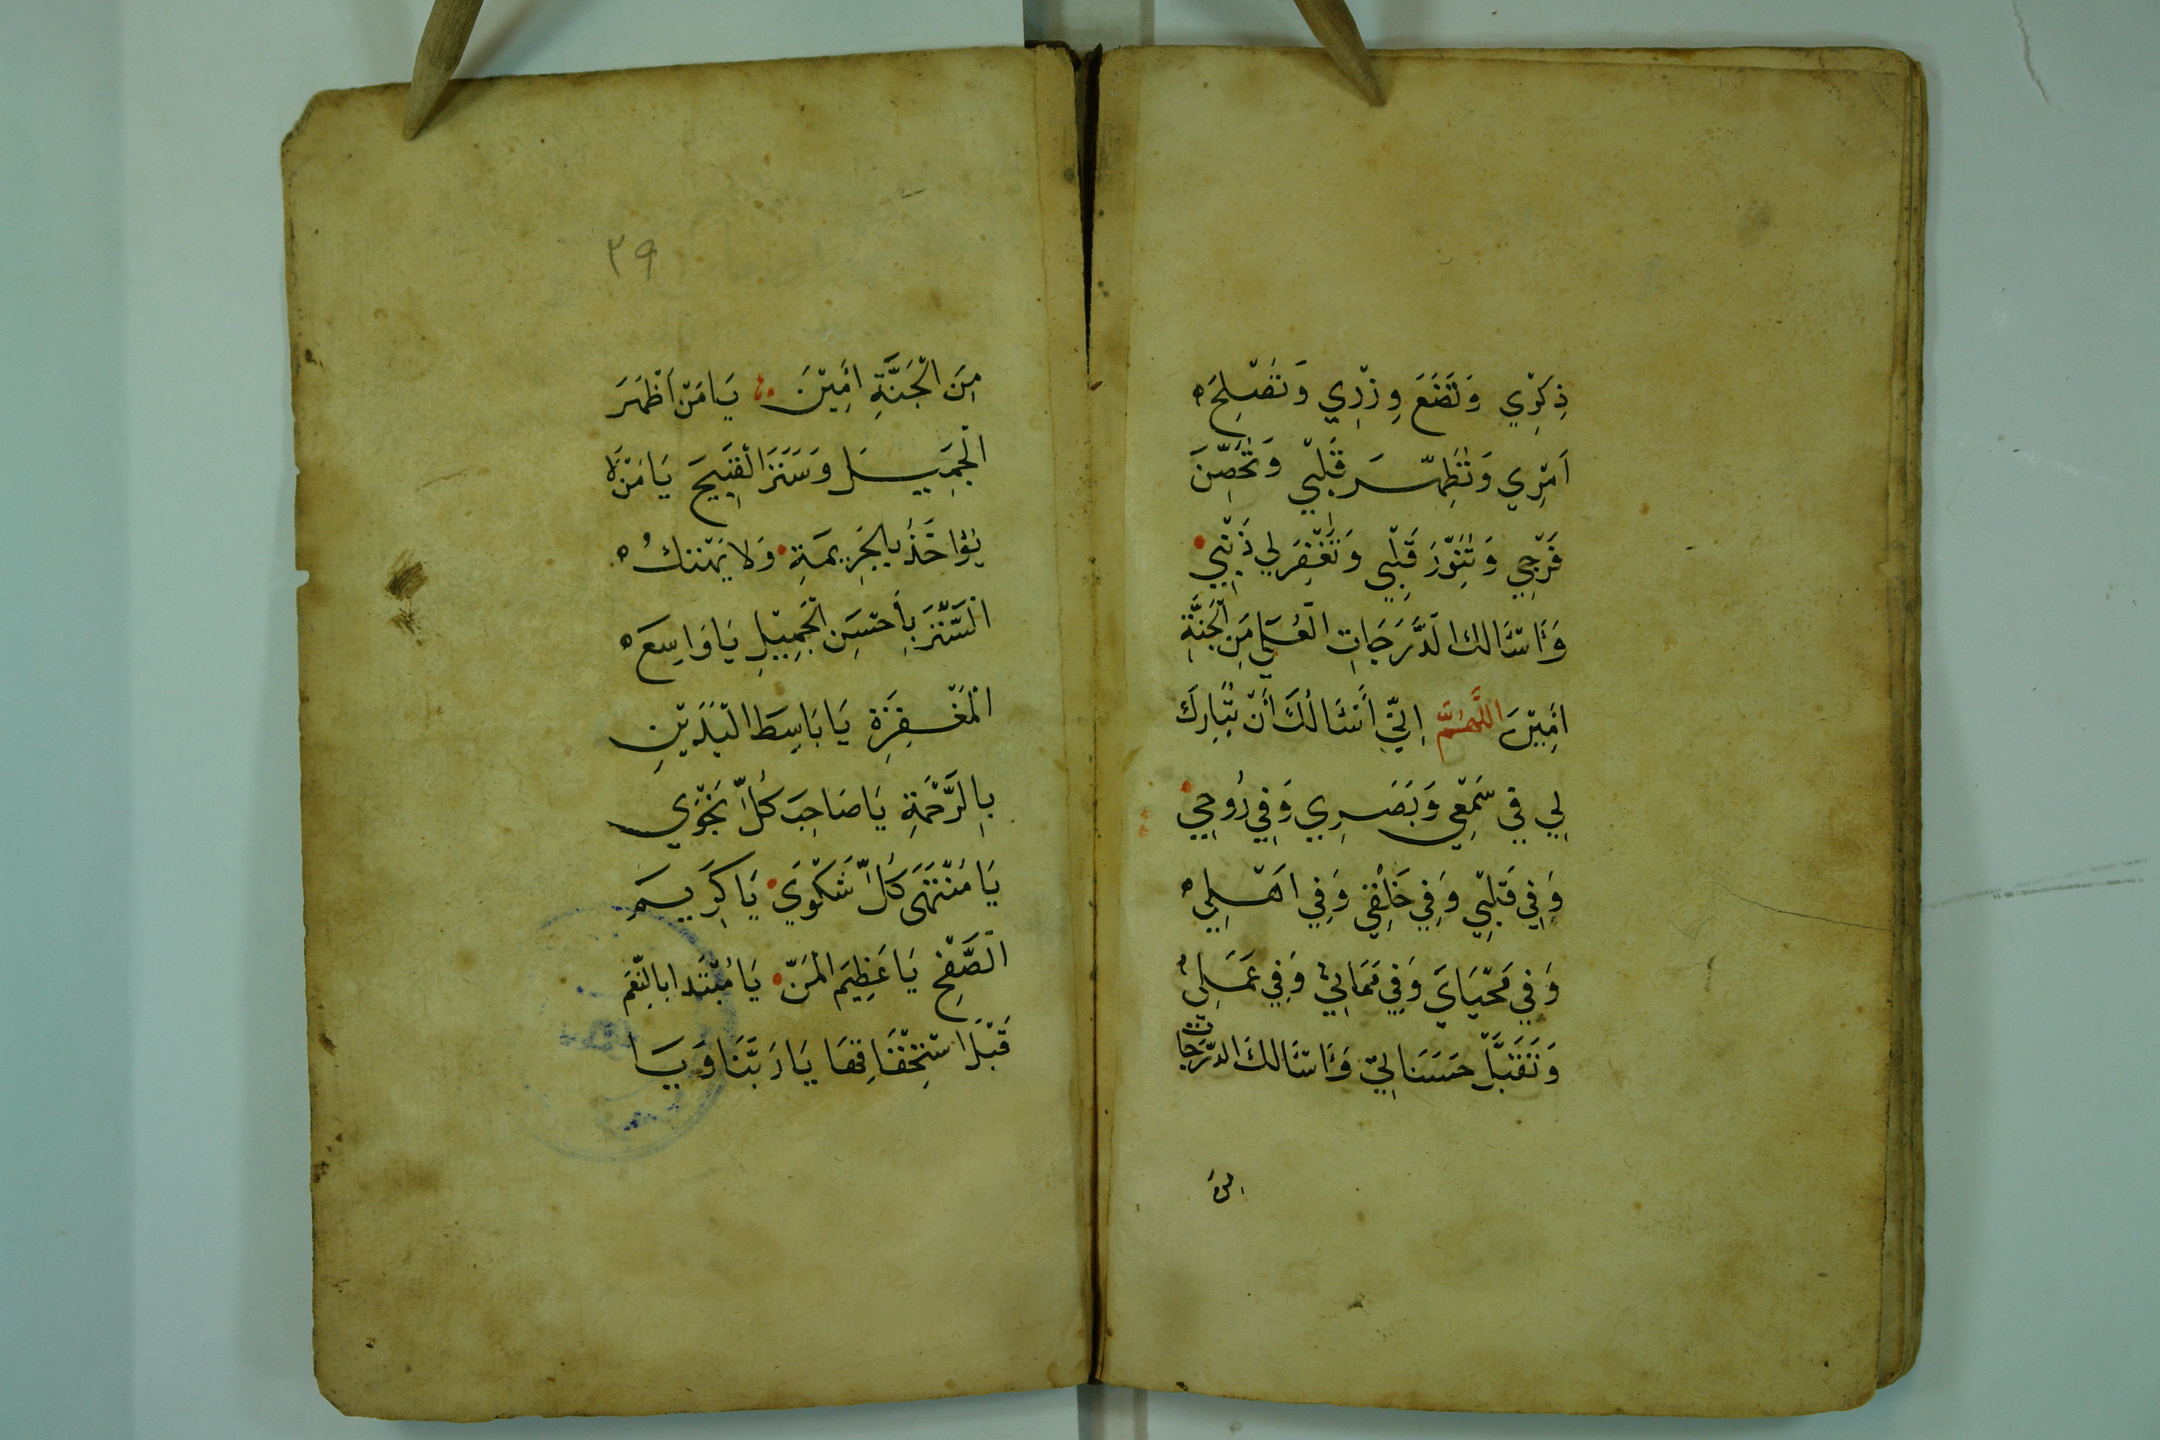 ذِكْرِي وَتَضَعَ وِزْرِي وَتُصْلِحَ
اَمْرِي وَتُطَهِّرَ قَلْبِي وَتُحَصِّنَ
فَرْجِي وَتُنَوِّرَ قَلْبِي وَتَغْفِرَ لِي ذَنْبِي
وَاَسْئَالك الدَّرَجَاتِ الْعُلَي مِنَ الْجَنَّةِ
امِيْنَ اللَّهُمَّ اِنِّي أَسْئَالُكَ أَنْ تُبَارِكَ
لِي فِي سَمْعِي وَبَصَرِي وَفِي رُوحِي
وَفِي قَلْبِي وَفِي خَلْقِي وَفِي اهْلِي
وَفِي مَحْيَايَ وَفِي مَمَاتِي وَفِي عَمَلِي
وَتَقَبَّلْ حَسَنَاتِي وَاَسْئَالكَ الدَّرَجات
من
٣٩
مِنَ الْجَنَّةِ امِيْنَ يَا مَنْ اَظْهَرَ
الْجَمِيلَ وَسَتَرَ الْقَبِيحَ يَا مَنْ لَا
يُؤاخَذُ بِالجَرِيمَةِ وَلا يَهْتِكُ
الْسَّتْرَ بِأَحْسَنِ الْجَمِيْلِ يَا وَاسِعَ
الْمَغْفِرَةِ يَا بَاسِطَ الْيَدَيْنِ
بِالرَّحْمَةِ يَا صَاحِبَ كُلِّ نَجْوَي
يَا مُنْتَهَى كُلِّ شَكْوَيَ يَا كَرِيمَ
الْصَّفْحِ يَا عَظِيَم الْمَنِّ يَا مُبْتَدا بالنِّعَمِ
قَبْلَ اسْتِحْقَاقهَا يَا رَبَّنَا وَيَا